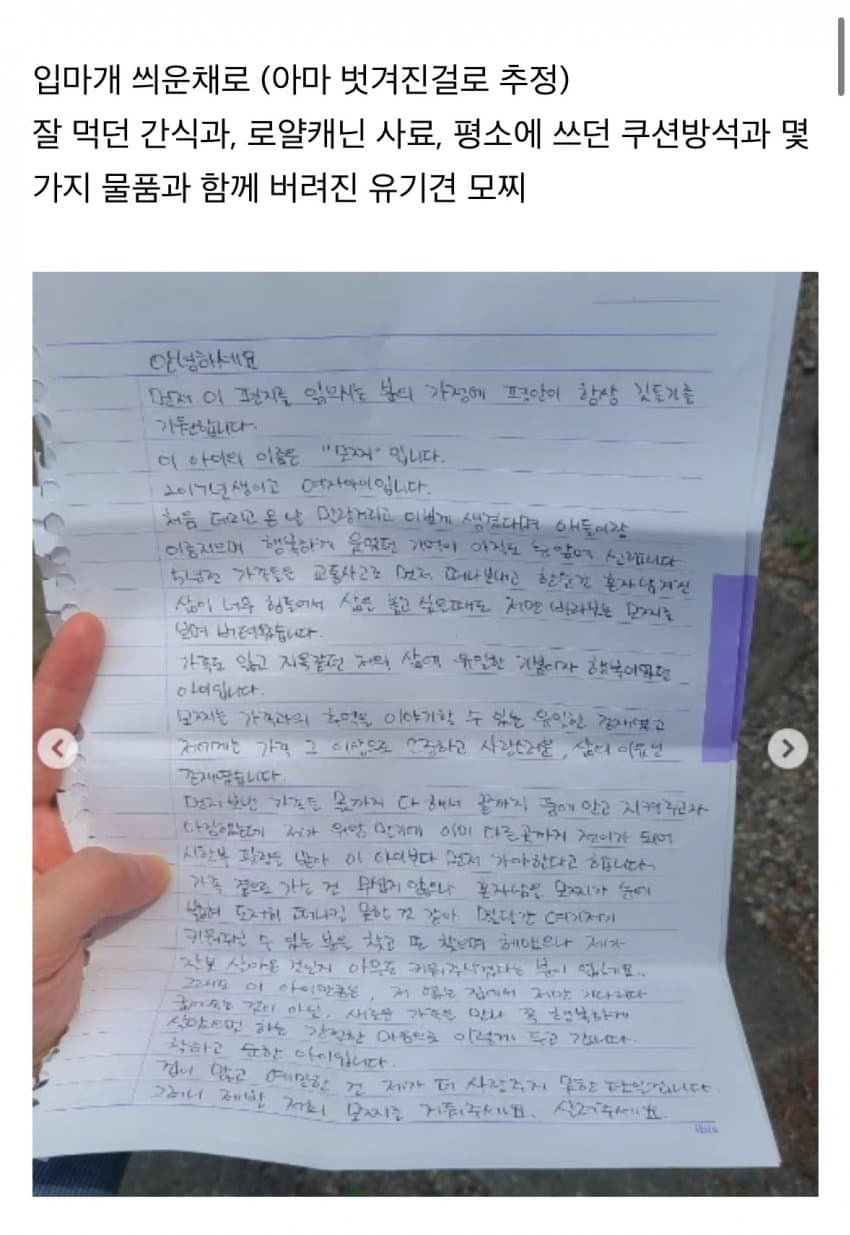 입마개 씌운채로 (아마 벗겨진걸로 추정)
잘 먹던 간식과, 로얄캐닌 사료, 평소에 쓰던 쿠션방석과 몇
가지 물품과 함께 버려진 유기견 모찌
안녕하세요
먼저 이 편지를 읽으시는 분의 가정에 평안이 항상 깃들기를
기원합니다.
이 아이의 이름은 "모찌" 입니다.
2017년생이고 여자아이입니다.
처음 데리고 온 날 말랑거리고 이쁘게 생겼다며 애들이랑
이름지으며 행복하게 웃었던 기억이 아직도 눈앞에 선합니다
5년전 가족들은 교통사고로 먼저 떠나보내고 한순간 혼자남겨진
삶이 너무 힘들어서 삶을 놓고 싶은때도 저만 바라보는 모찌를
보며 버텨왔습니다.
가족도 잃고 지옥같던 저의 삶에 유일한 기쁨이자 행복이였던
아이입니다.
모찌는 가족과의 추억을 이야기할 수 있는 유일한 존재였고
저에게는 가족 그 이상으로 소중하고 사랑스러운, 삶의 이유인
존재였습니다.
먼저보낸 가족들 몫까지 다 해서 끝까지 품에 안고 지켜주고자
다짐했는데 제가 위암 말기에 이미 다른곳까지 전이가 되어
시한부 판정을 받아 이 아이보다 먼저 가야한다고 합니다.
가족 곁으로 가는 건 무섭지 않으나 혼자남을 모찌가 눈에
밟혀 도저히 떠나지 못할 것 같아 몇달간 여기저기
키워주실 수 있는 분을 찾고 또 찾으며 헤맸으나 제가
잘못 살아온 것인지 아무도 키워주시겠다는 분이 없네요..
그래도 이 아이만큼은, 저 없는 집에서 저만 기다리다
굶어죽는 것이 아닌, 새로운 가족을 만나 꼭 행복하게
살았으면 하는 간절한 마음으로 이렇게 두고 갑니다.
착하고 순한 아이입니다.
겁이 많고 예민한 건 제가 더 사랑주지 못한 탓입니다.
그러니 제발 저희 모찌를 거둬주세요. 살려주세요.
ibis